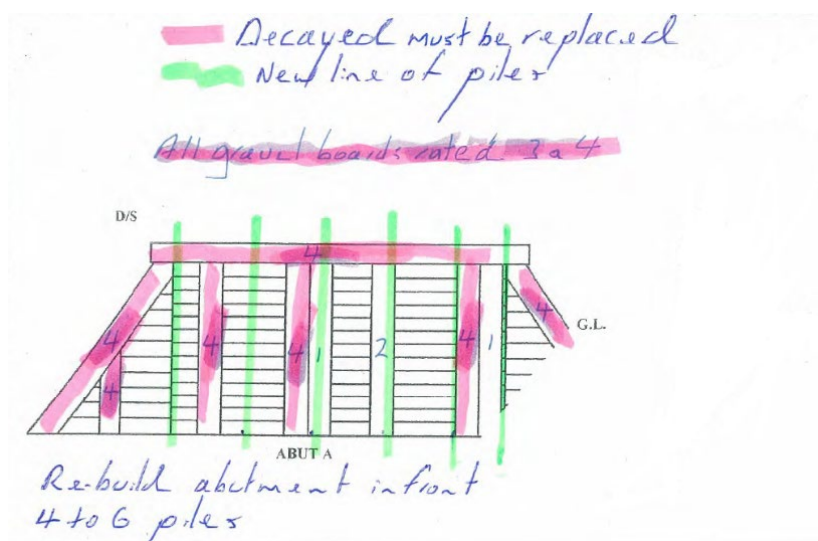 Decayed must be replaced
New line of piles
All gravel boards rated 3 a 4
D/S
4
4
4
4
4
1
2
4
1
4
G.L.
ABUT A
Re-build abutment infront
4 to 6 piles